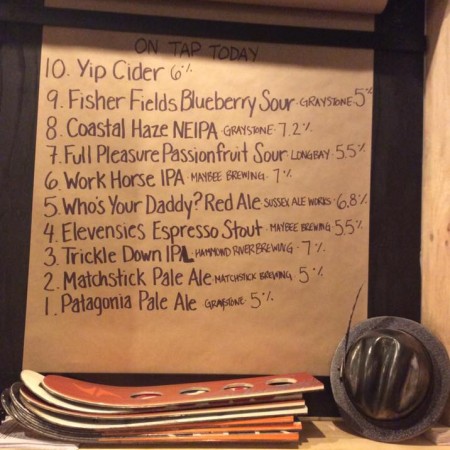 ON TAP TODAY
10. Yip Cider 6%
9. Fisher Fields Blueberry Sour · GRAYSTONE 5%
8. Coastal Haze NEIPA · GRAYSTONE · 7.2%
7. Full Pleasure Passionfruit Sour · LONGBAY · 5.5%
6. Work Horse IPA · MAYBEE BREWING · 7%
5. Who's Your Daddy? Red Ale SUSSEX ALE WORKS · 6.8%
4. Elevensies Espresso Stout · MAYBEE BREWING 5.5%
3. Trickle Down IPL HAMMOND RIVER BREWING · 7%
2. Matchstick Pale Ale MATCHSTICK BREWING 5%
1. Patagonia Pale Ale GRAYSTONE · 5%